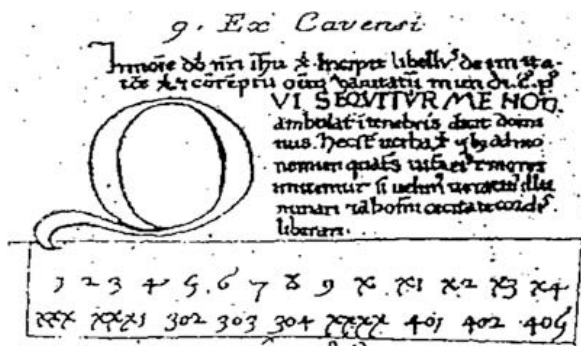 9. Ex Cavensi
In noīe dn̄i nr̄i ihu x̄. Incipit libellus de imita-
tiōe x̄ et cōtēptu oīum vanitatū mundi. C. p
QVI SEQVITVR ME NON
ambulat i tenebris dicit domi
nus. hec st verba x̄ admo
nemur quat' vitā ei' et mores
imitemur si velim' veracit' illu
minari et ab omi cecitate cordis
liberari.
1 2 3 4 5 6 7 8 9 x x1 x2 x3 x4
xxx xxx1 302 303 304 xxxx 401 402 405